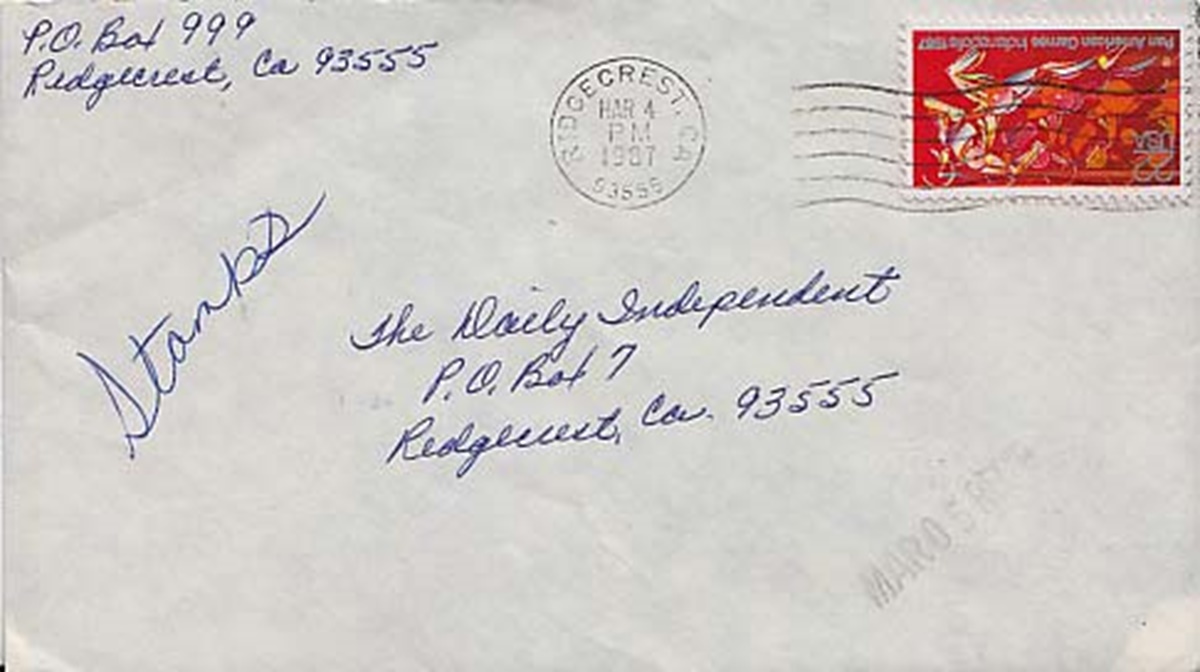 P.O. Box 999
Ridgecrest, Ca 93555
RIDGECREST, CA
MAR 4
PM
1987
93555
Pan American Games Indianapolis 1987
USA
22
Stamps
The Daily Independent
P.O. Box 7
Ridgecrest, Ca. 93555
MAR 0 5 87